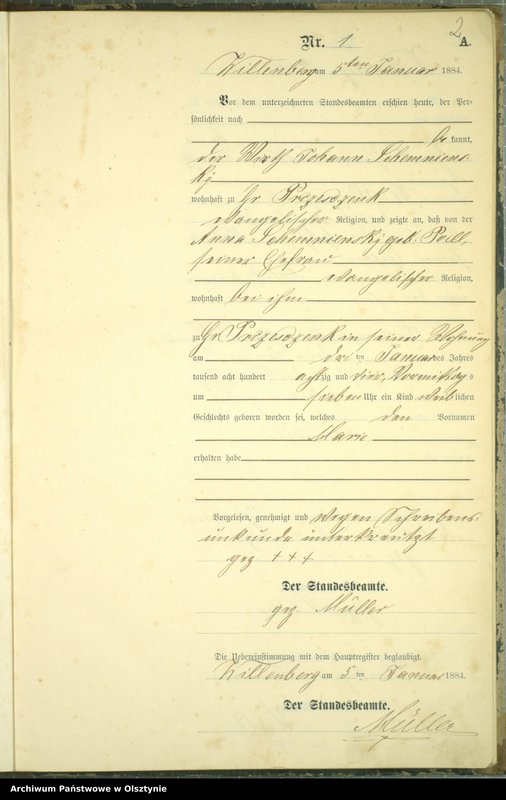 2
Nr. 1 A.
Willenberg am 5ten Januar 1884.
Vor dem unterzeichneten Standesbeamten erschien heute, der Per-
sönlichkeit nach
be kannt,
der Wirth Johann Schemniens-
ky
wohnhaft zu Gr Przesdzenk
evangelischer Religion, und zeigte an, daß von der
Anna Schemniensky geb. Poll,
seiner Ehefrau
evangelischer Religion,
wohnhaft bei ihm
zu Gr Przesdzenk in seiner Wohnung
am dri ten Januar des Jahres
tausend acht hundert achtzig und vier, Vormittags
um sieben Uhr ein Kind weiblichen
Geschlechts geboren worden sei, welches den Vornamen
Marie
erhalten habe
Vorgelesen, genehmigt und wegen Schreibens-
unkunde unterkreuzt
gez. + + +
Der Standesbeamte.
gez. Müller
Die Uebereinstimmung mit dem Hauptregister beglaubigt.
Willenberg am 5 ten Januar 1884.
Der Standesbeamte.
Müller
Archiwum Państwowe w Olsztynie